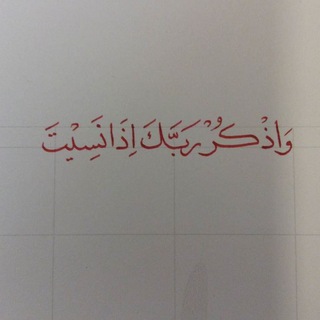 وَاذْكُرْ رَبَّكَ اِذَا نَسِيْتَ